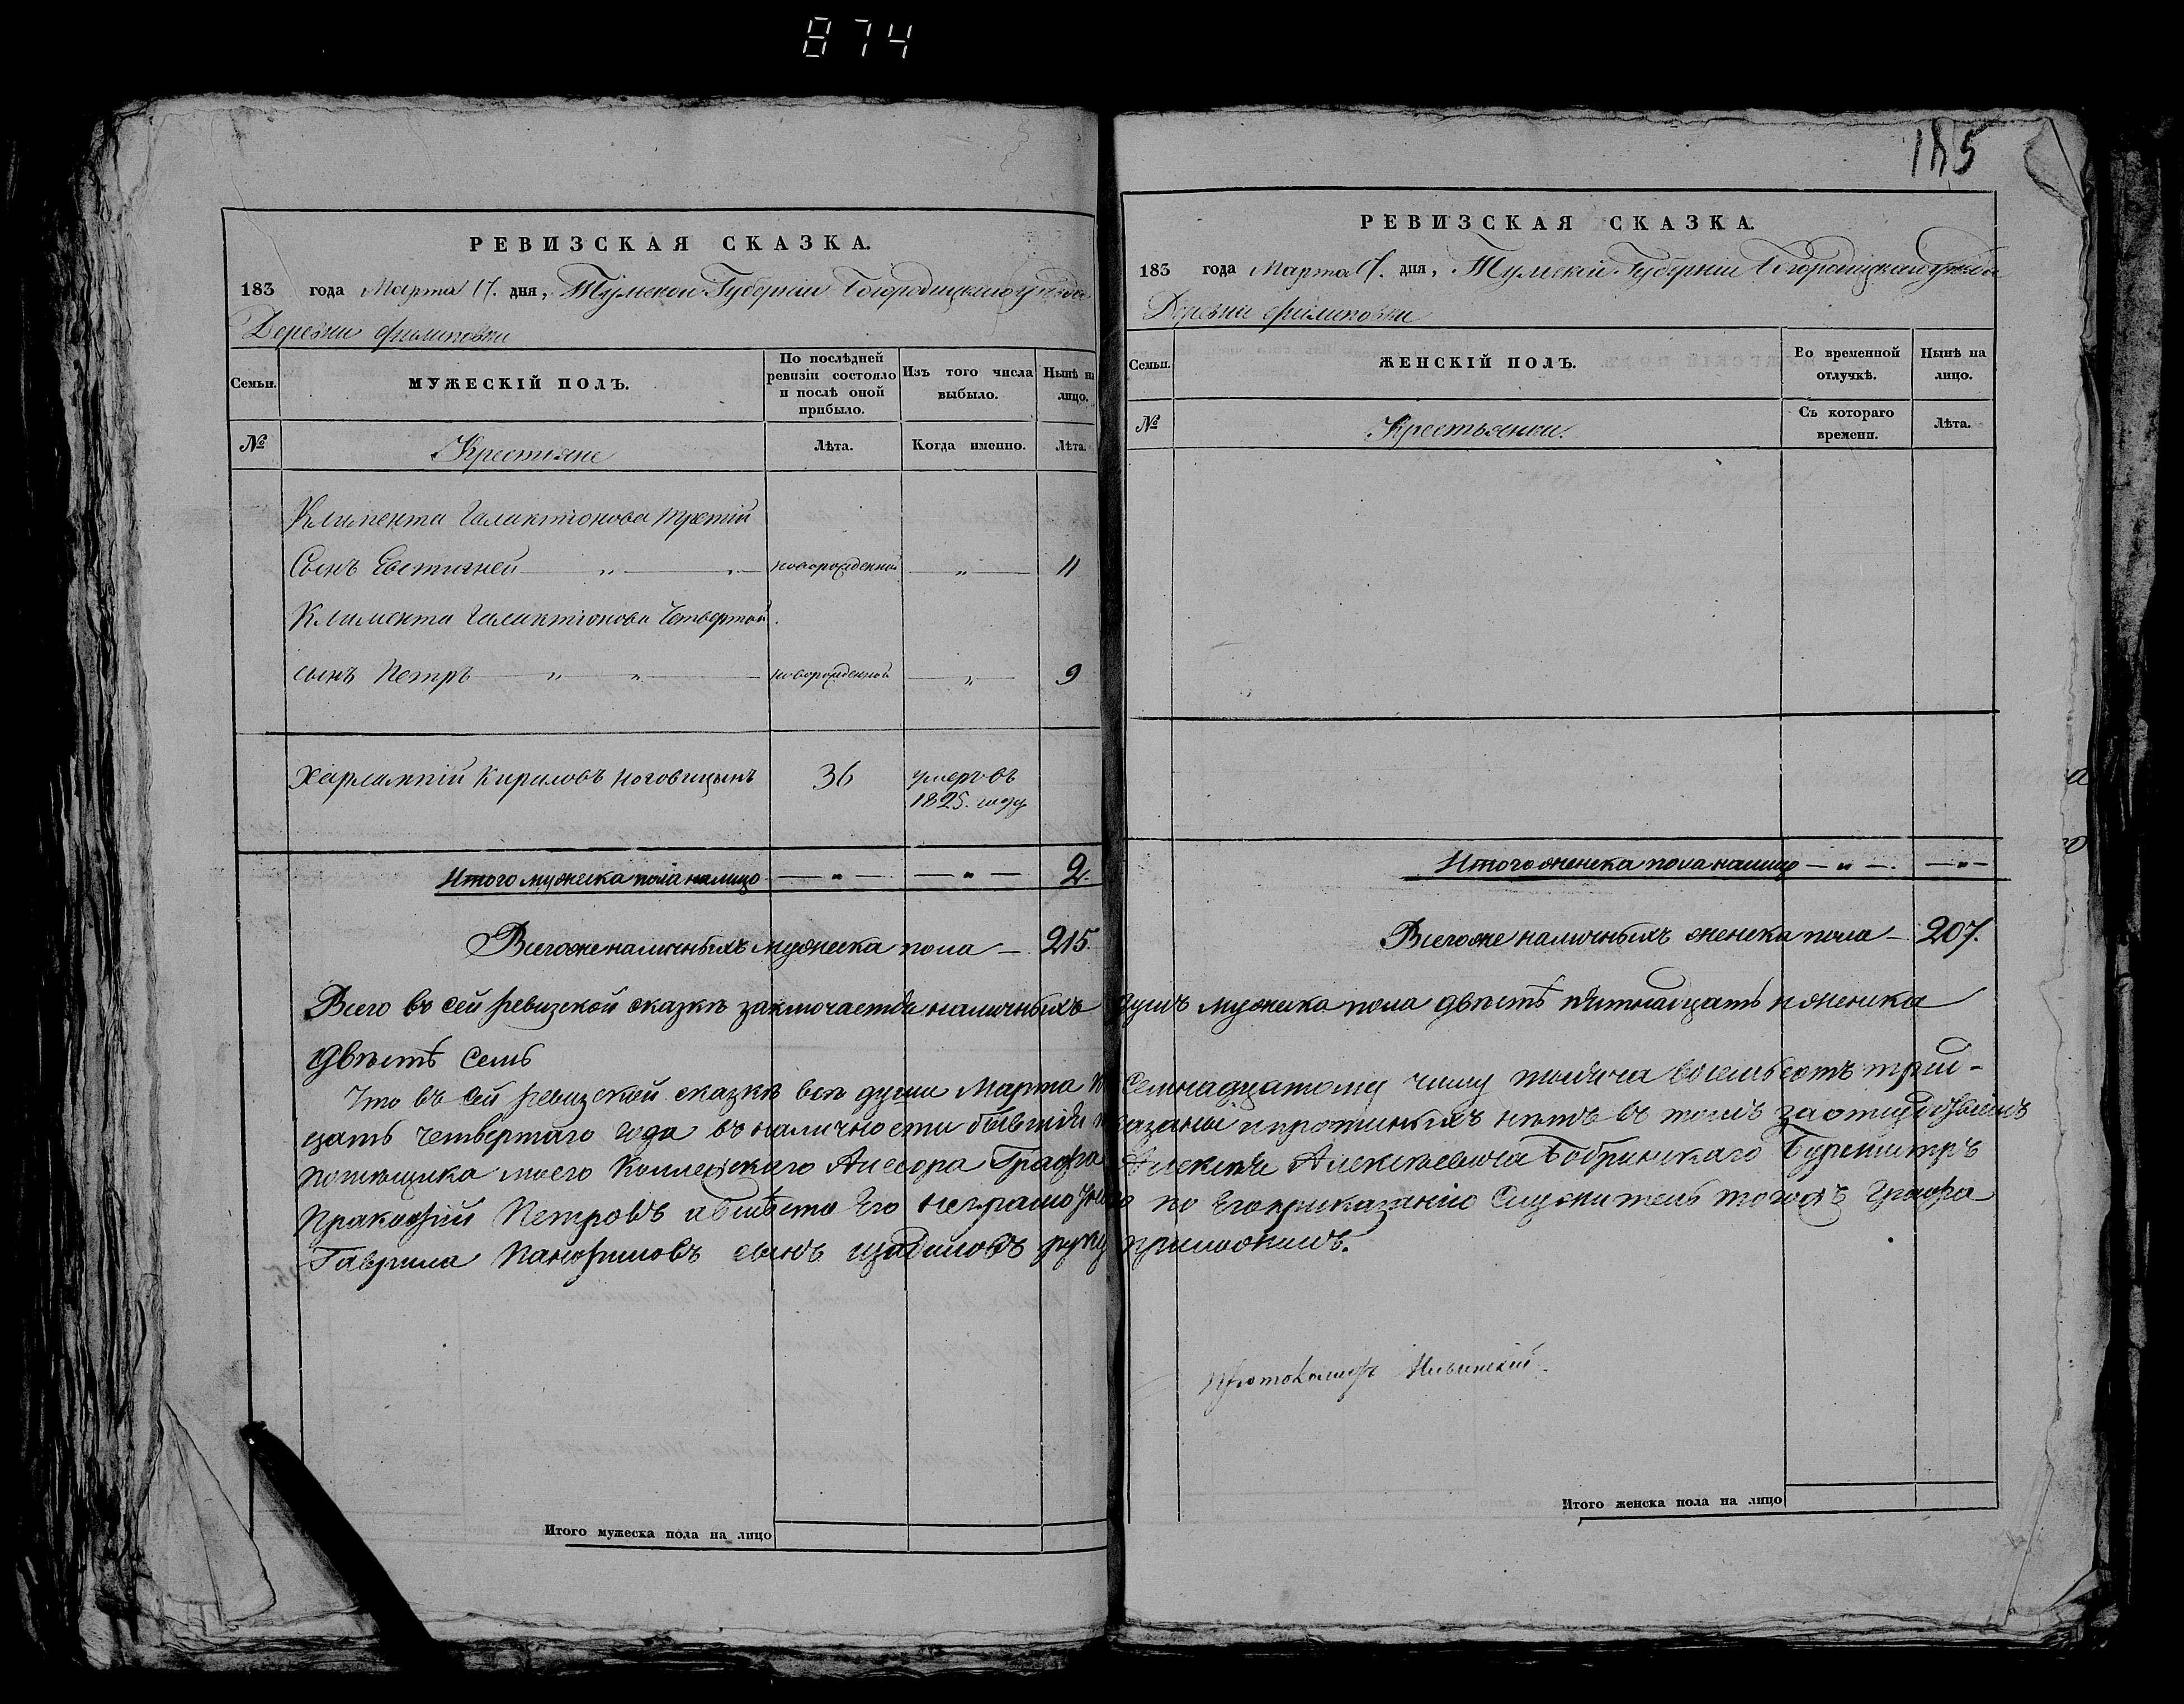 874
185
РЕВИЗСКАЯ СКАЗКА.
183 года Марта 17. дня, Тульской Губернии Богородицкаго уезда
Деревни Филиповки
Семьи. МУЖЕСКІЙ ПОЛЪ. По послѣдней ревизіи состояло и послѣ оной прибыло. Изъ того числа выбыло. Нынѣ на лицо.
№ Крестияне Лѣта. Когда именно. Лѣта.
Климента Галактионова третий
Сынъ Евстигней — „ — „ — новорожденной — „ — 11
Климента Галактионова Четвертой
сынъ Петръ — „ — „ — новорожденной — „ — 9
Харлампий Кириловъ Ноговицынъ 36 умеръ въ
1825. году
Итого мужеска пола налицо — „ — — „ — 2.
Всегоже наличныхъ мужеска пола — 215.
РЕВИЗСКАЯ СКАЗКА.
183 года Марта 17. дня, Тульской Губернии Богородицкаго уезда
Деревни Филиповки
Семьи. ЖЕНСКІЙ ПОЛЪ. Во временной отлучкѣ. Нынѣ на лицо.
№ Крестьянки. Съ котораго времени. Лѣта.
Итого женска пола налицо — „ — — „ —
Всегоже наличныхъ женска пола — 207.
Всего во сей ревизской сказкѣ заключается наличныхъ душъ мужеска пола двѣстѣ пятнадцать и женска
двѣстѣ семь
Что въ сей ревизской сказкѣ всѣ души Марта по Семнадцатому числу тысяча восемьсотъ трит-
цать четвертаго года въ наличности бывшія показаны и прописныхъ нѣтъ в томъ
помѣщика моего Коллежскаго Асесора Графа Алексѣя Алексѣевича Бобринскаго Бурмистръ
Пракофий Петровъ авмѣсто Его неграмотнаго по Его приказанію Служитель тогожъ Графа
Гаврила Панфиловъ сынъ руку приложилъ.
Протоколистъ
Итого мужеска пола на лицо
Итого женска пола на лицо